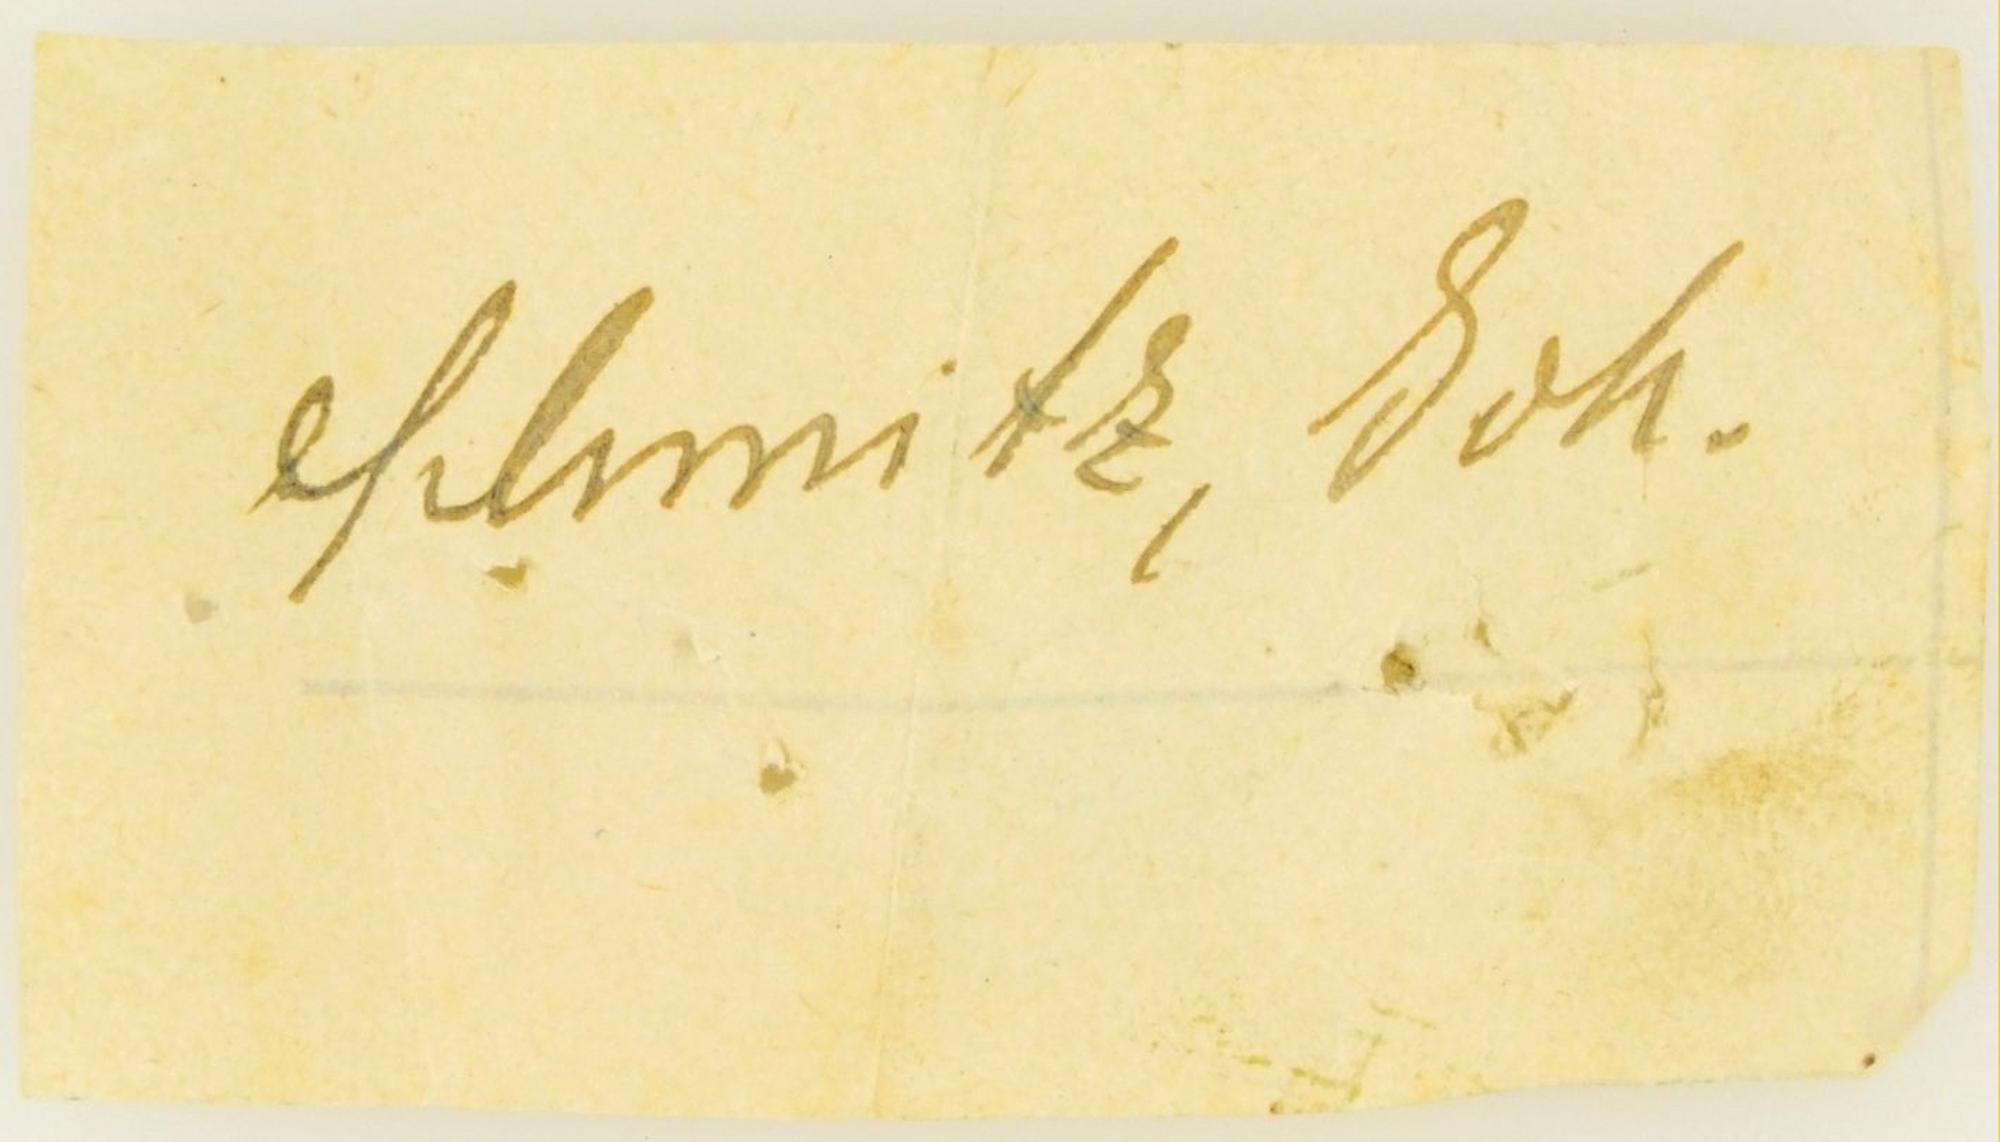 Schmitz, Joh.